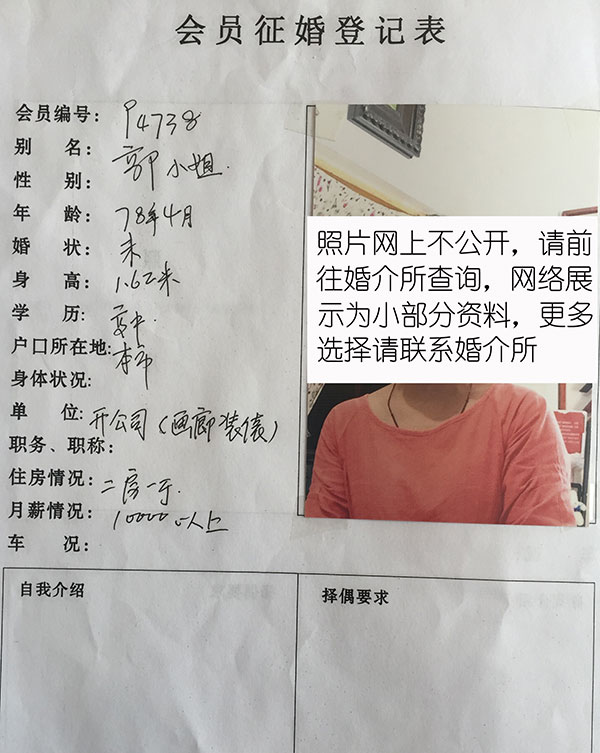 会员征婚登记表
会员编号: P4738
别 名: 郭小姐.
性 别:
年 龄: 78年4月
婚 状: 未
身 高: 1.62米
学 历: 高中.
户口所在地: 本市
身体状况:
单 位: 开公司(画廊装俵)
职务、职称:
住房情况: 二房一厅.
月薪情况: 10000以上
车 况:
照片网上不公开，请前
往婚介所查询，网络展
示为小部分资料，更多
选择请联系婚介所
自我介绍
择偶要求